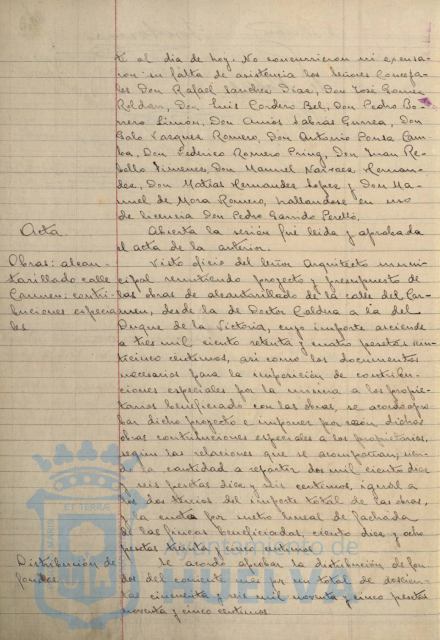 te al dia de hoy. No concurrieron ni excusa-
ron su falta de asistencia los Señores Conceja-
les Don Rafael Sanchez Diaz, Don José Gomez
Roldan, Don Luis Cordero Bel, Don Pedro Bo-
rrero Limón, Don Amós Sabrás Gurrea, Don
Galo Vazquez Romero, Don Antonio Ponsa Cam-
ba, Don Federico Romero Pring, Don Juan Re-
bollo Jimenez, Don Manuel Narvaez Hernan-
dez, Don Matías Hernandez Lopez y Don Ma-
nuel de Mora Romero, hallandose en uso
de licencia Don Pedro Garrido Perelló.
Acta.
Abierta la sesión fué leida y aprobada
el acta de la anterior.
Obras: alcan-
tarillado calle
Carmen: contri-
buciones especia-
les
Visto oficio del Señor Arquitecto muni-
cipal remitiendo proyecto y presupuesto de
las obras de alcantarillado de la calle del Car-
men, desde la de Doctor Coldua a la del
Duque de la Victoria, cuyo importe asciende
a tres mil ciento setenta y cuatro pesetas vein-
ticinco centimos, asi como los documentos
necesarios para la imposición de contribu-
ciones especiales por la misma a los propie-
tarios beneficiado con las obras, se acordó apro-
bar dicho proyecto e imponer por razon dichas
obras contribuciones especiales a los propietarios,
según las relaciones que se acompañan, sien-
do la cantidad a repartir dos mil ciento diez
y seis pesetas diez y seis centimos, igual a
los dos tercios del importe total de las obras,
y la cuota por metro lineal de fachada
de las fincas beneficiadas, ciento diez y ocho
pesetas treinta y cinco centimos.
Distribución de
fondos.
Se acordó aprobar la distribución de fon-
dos del corriente mes por un total de doscien-
tas cincuenta y seis mil noventa y cinco pesetas
noventa y cinco centimos.
ET TERRÆ